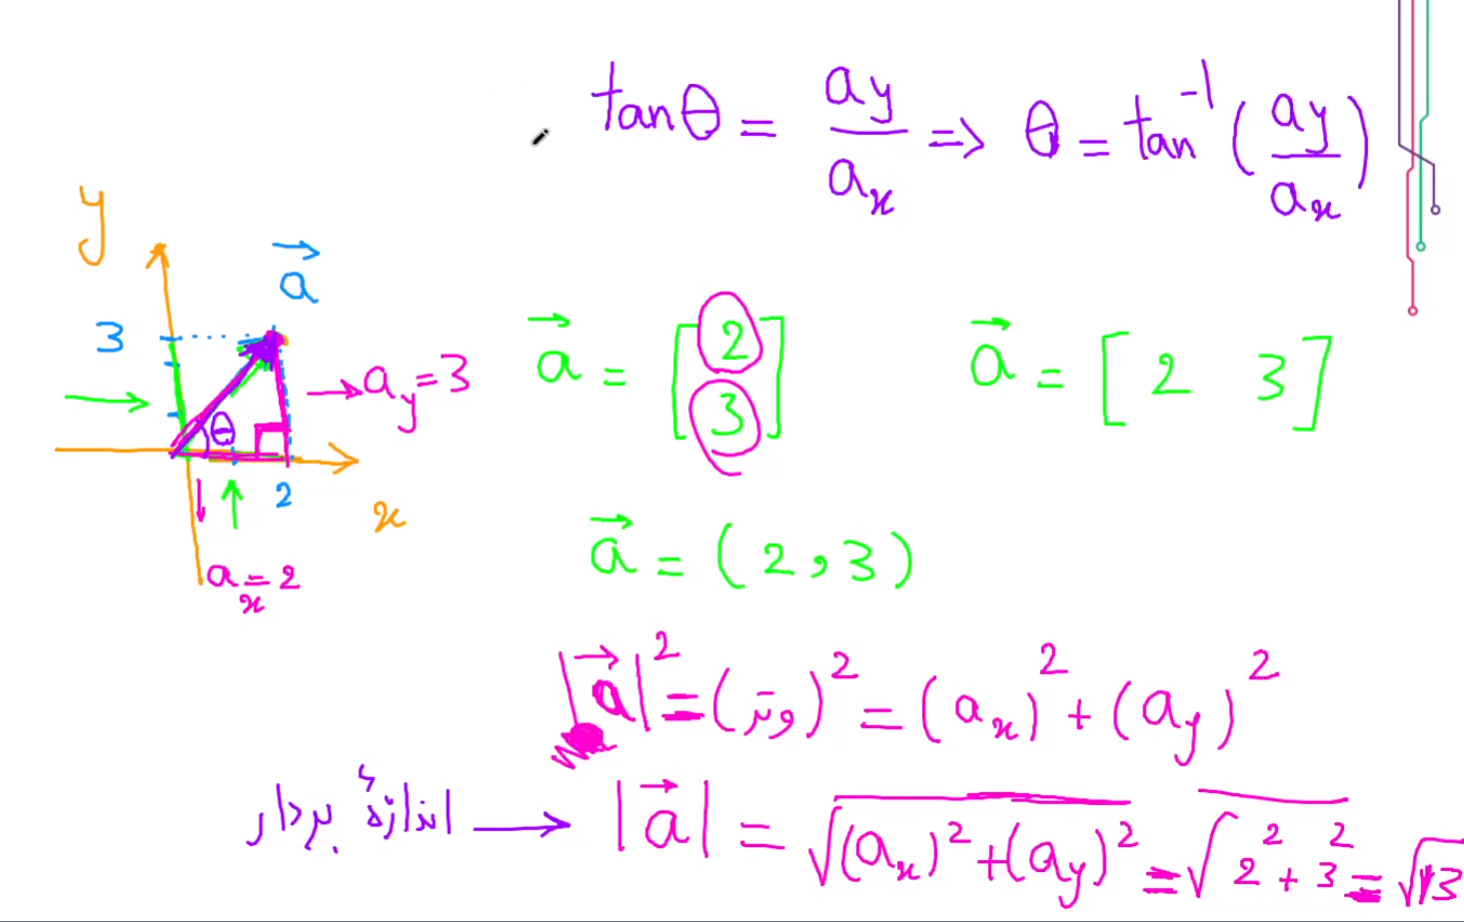 tanθ = ay/ax ⇒ θ = tan⁻¹(ay/ax)
y
a⃗
3
a⃗ = [2 3]
a⃗ = [2 3]
→ ay = 3
θ
2
x
ax = 2
a⃗ = (2,3)
|a⃗|² = (وتر)² = (ax)² + (ay)²
اندازهٔ بردار → |a⃗| = √((ax)² + (ay)²) = √(2² + 3²) = √13